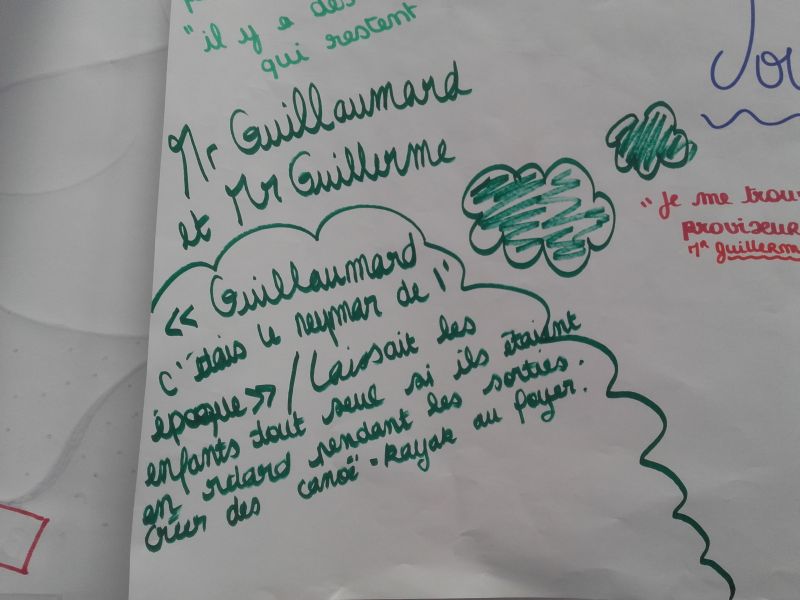 "il y a des
qui restent
Mr Guillaumard
et Mr Guillerme
« Guillaumard
c'étais le neymar de l'
époque » / Laissait les
enfants tout seul si ils étaient
en retard pendant les sorties.
Créer des canoë-kayak au foyer.
Jou
"Je me trou
proviseur
Mr guillerm